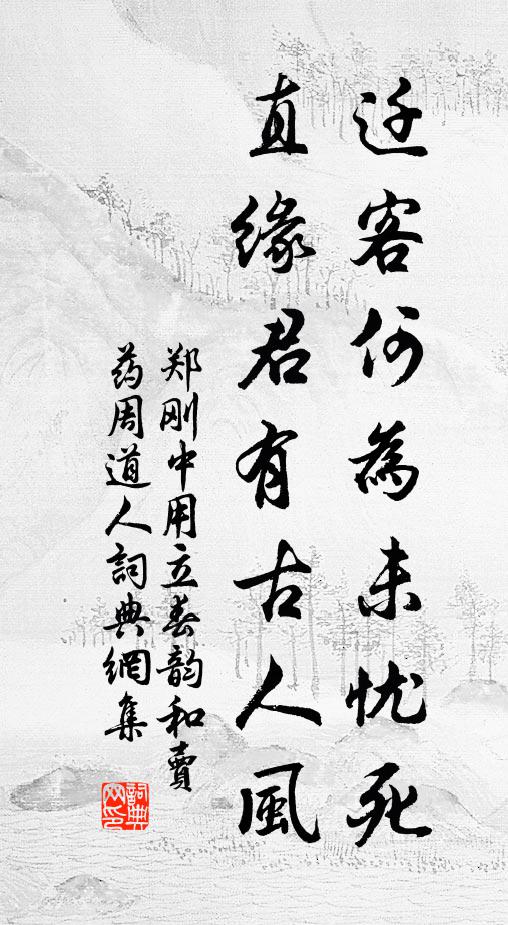 迁客何為未忧死
直緣君有古人風
郑刚中用立春韵和賣
药周道人詞典網集
詞典
网印